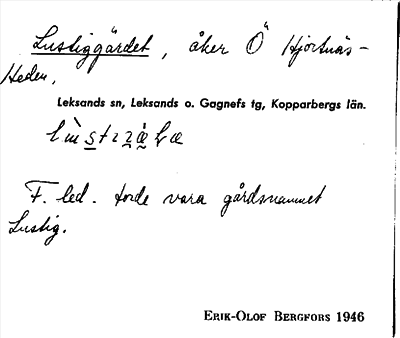 Lustiggärdet, åker Ö Hjortnäs-
Heden.
Leksands sn, Leksands o. Gagnefs tg, Kopparbergs län.
F. led. torde vara gårdsnamnet
Lustig.
ERIK-OLOF BERGFORS 1946